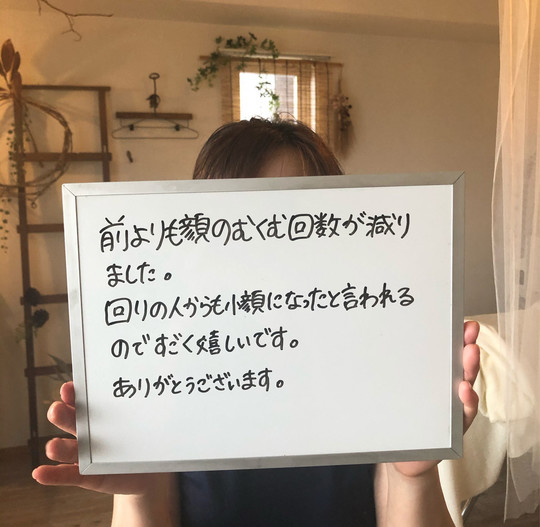 前よりも顔のむくむ回数が減り
ました。
回りの人からも小顔になったと言われる
のですごく嬉しいです。
ありがとうございます。